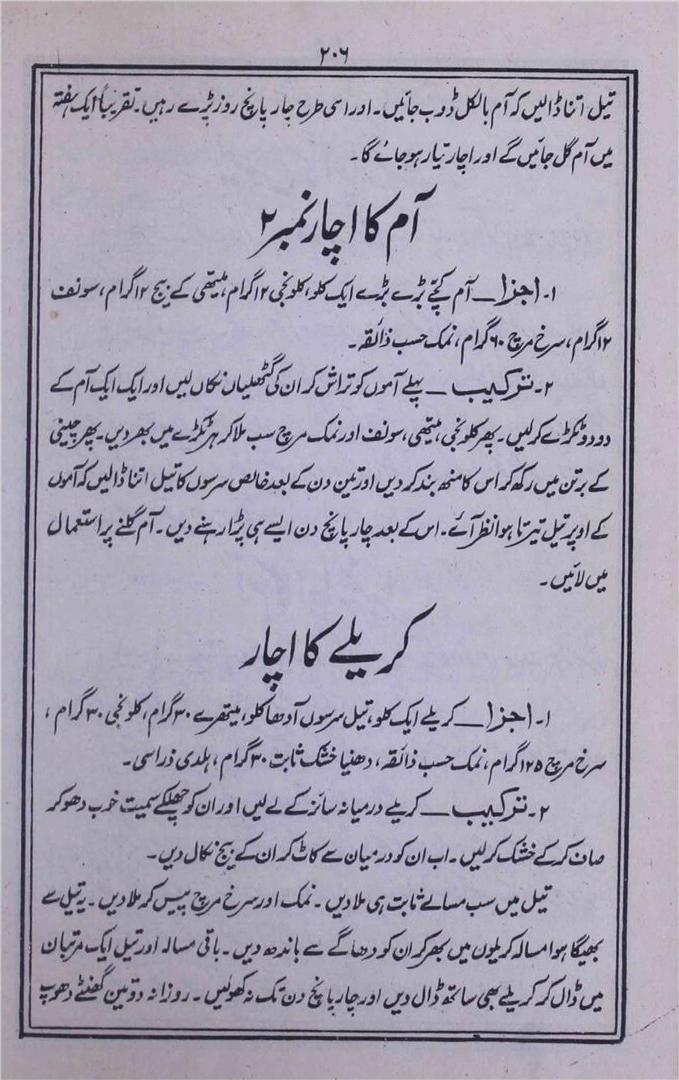 ۲۰۶
تیل اتنا ڈالیں کہ آم بالکل ڈوب جائیں۔ اور اسی طرح چار پانچ روز پڑے رہیں۔ تقریباً ایک ہفتہ
میں آم گل جائیں گے اور اچار تیار ہو جائے گا۔
آم کا اچار نمبر ۲
۱۔ اجزا ــ آم کچّے بڑے بڑے ایک کلو، کلونجی ۱۲ گرام، میتھی کے بیج ۱۲ گرام، سونف
۱۲ گرام، سرخ مرچ ۶۰ گرام، نمک حسب ذائقہ۔
۲۔ ترکیب ــ پہلے آموں کو تراش کر ان کی گٹھلیاں نکال لیں اور ایک ایک آم کے
دو دو ٹکڑے کر لیں۔ پھر کلونجی، میتھی، سونف اور نمک مرچ سب ملا کر ہر ٹکڑے میں بھر دیں۔ پھر چینی
کے برتن میں رکھ کر اس کا منھ بند کر دیں اور تین دن کے بعد خالص سرسوں کا تیل اتنا ڈالیں کہ آموں
کے اوپر تیل تیرتا ہوا نظر آئے۔ اس کے بعد چار پانچ دن ایسے ہی پڑا رہنے دیں۔ آم گلنے پر استعمال
میں لائیں۔
کریلے کا اچار
۱۔ اجزا ــ کریلے ایک کلو، تیل سرسوں آدھا کلو، میتھرے ۳۰ گرام، کلونجی ۳۰ گرام،
سرخ مرچ ۱۲۵ گرام، نمک حسب ذائقہ، دھنیا خشک ثابت ۳۰ گرام، ہلدی ذرا سی۔
۲۔ ترکیب ــ کریلے درمیانہ سائز کے لے لیں اور ان کو چھلکے سمیت خوب دھو کر
صاف کر کے خشک کر لیں۔ اب ان کو درمیان سے کاٹ کر ان کے بیج نکال دیں۔
تیل میں سب مسالے ثابت ہی ملا دیں۔ نمک اور سرخ مرچ پیس کر ملا دیں۔ یہ تیل سے
بھیگا ہوا مسالہ کریلوں میں بھر کر ان کو دھاگے سے باندھ دیں۔ باقی مسالہ اور تیل ایک مرتبان
میں ڈال کر کریلے بھی ساتھ ڈال دیں اور چار پانچ دن تک نہ کھولیں۔ روزانہ دو تین گھنٹے دھوپ